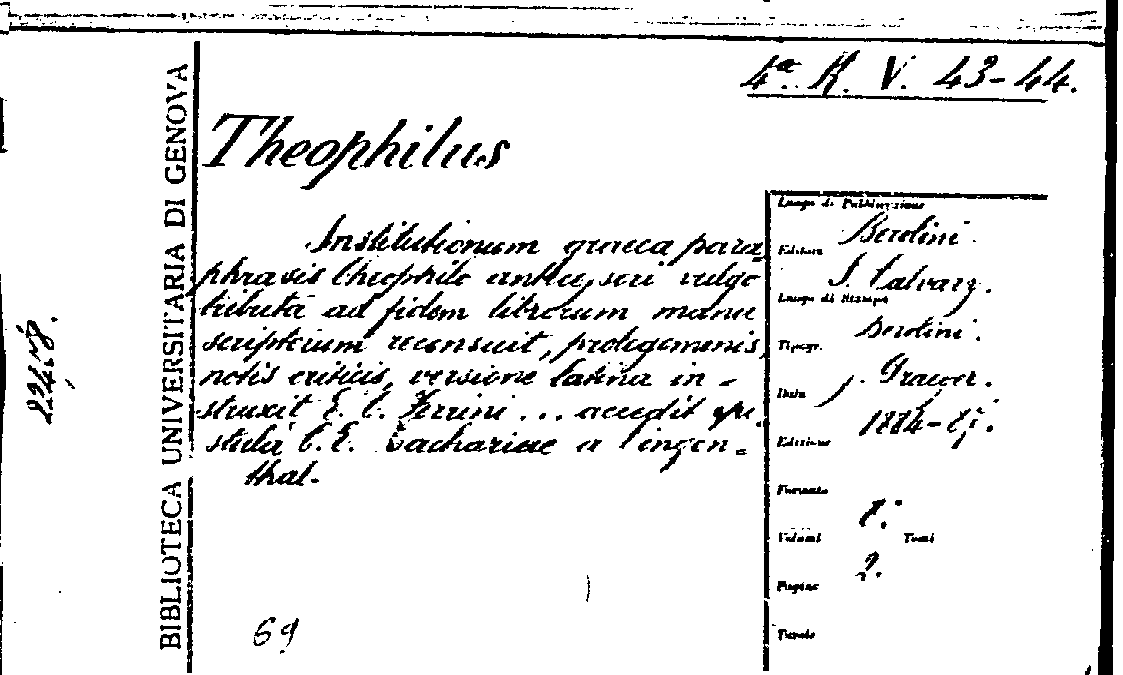 4ª. R. V. 43-44.
Theophilus
Institutionum graeca para
phrasis Theophilo antecessori vulgo
tributa ad fidem librorum manu
scriptorum recensuit, prolegomenis,
notis criticis, versione latina in-
struxit E. C. Ferrini ... accedit epi
stula C. E. Zachariae a Lingen=
thal.
69
BIBLIOTECA UNIVERSITARIA DI GENOVA
Luogo di Pubblicazione
Berolini.
Editore
S. Calvary.
Luogo di Stampa
Berolini.
Tipogr.
Data
1884-
Edizione
Formato
8.
Volumi Tomi
2.
Pagine
Tavole